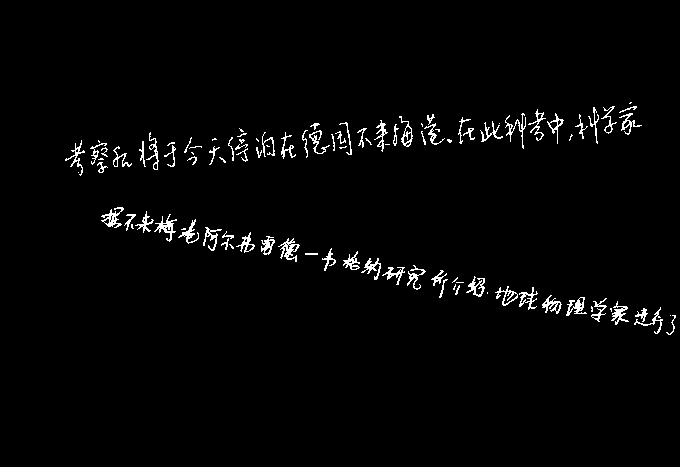 考察船将于今天停泊在德国不来梅港。在此科考中,科学家
据不来梅港阿尔弗雷德一韦格纳研究所介绍.地球物理学家进行了